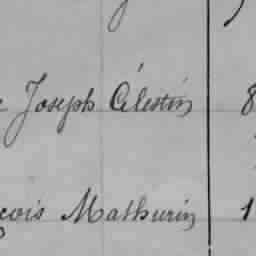 Joseph Célestin 8
çois Mathurin 1